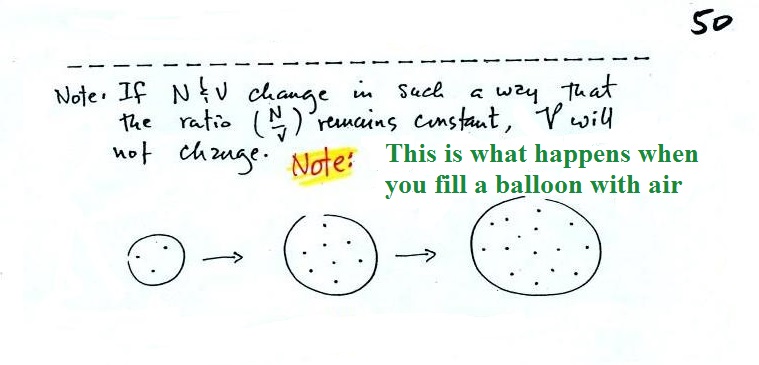 50
Note: If N & V change in such a way that
the ratio (N/V) remains constant, P will
not change. Note: This is what happens when
you fill a balloon with air